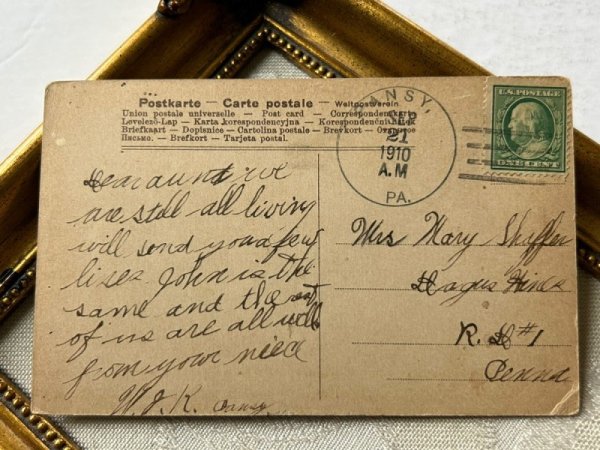 Postkarte – Carte postale – Weltpostverein
Union postale universelle – Post card – Correspondenzkarte
Levelező-Lap – Karta korespondencyjna – Korespondenční lístek
Briefkaart – Dopisnice – Cartolina postale – Brevkort – Открытое
Письмо. – Brefkort – Tarjeta postal.
PANSY,
21
1910
A.M
PA.
U.S. POSTAGE
ONE CENT
Dear aunt we
are still all living
will send you a few
lines John is the
same and the rest
of us are all well
from your niece
W. J. K. Pansy
Mrs Mary Shaffer
Hagus
R. D #1
Penna